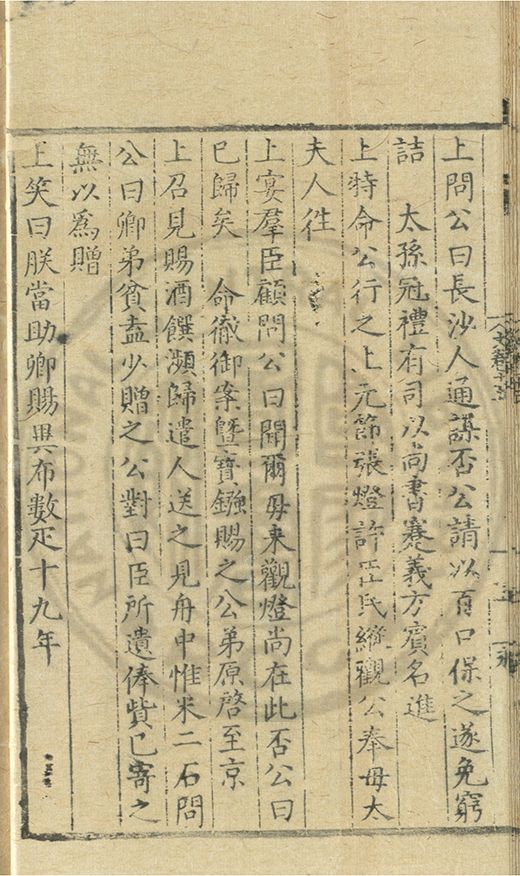 上問公曰長沙人通謀否公請以百口保之遂免窮
詰　太孫冠禮有司以尚書蹇義方賓名進
上特命公行之上元節張燈許臣民縱觀公奉母太
夫人往
上宴羣臣顧問公曰聞爾母來觀燈尚在此否公曰
已歸矣　命徹御案曁寶鏹賜之公弟原啓至京
上召見賜酒饌瀕歸遣人送之見舟中惟米二石問
公曰卿弟貧盍少贈之公對曰臣所遺俸貲已寄之
無以爲贈
上笑曰朕當助卿賜異布數疋十九年